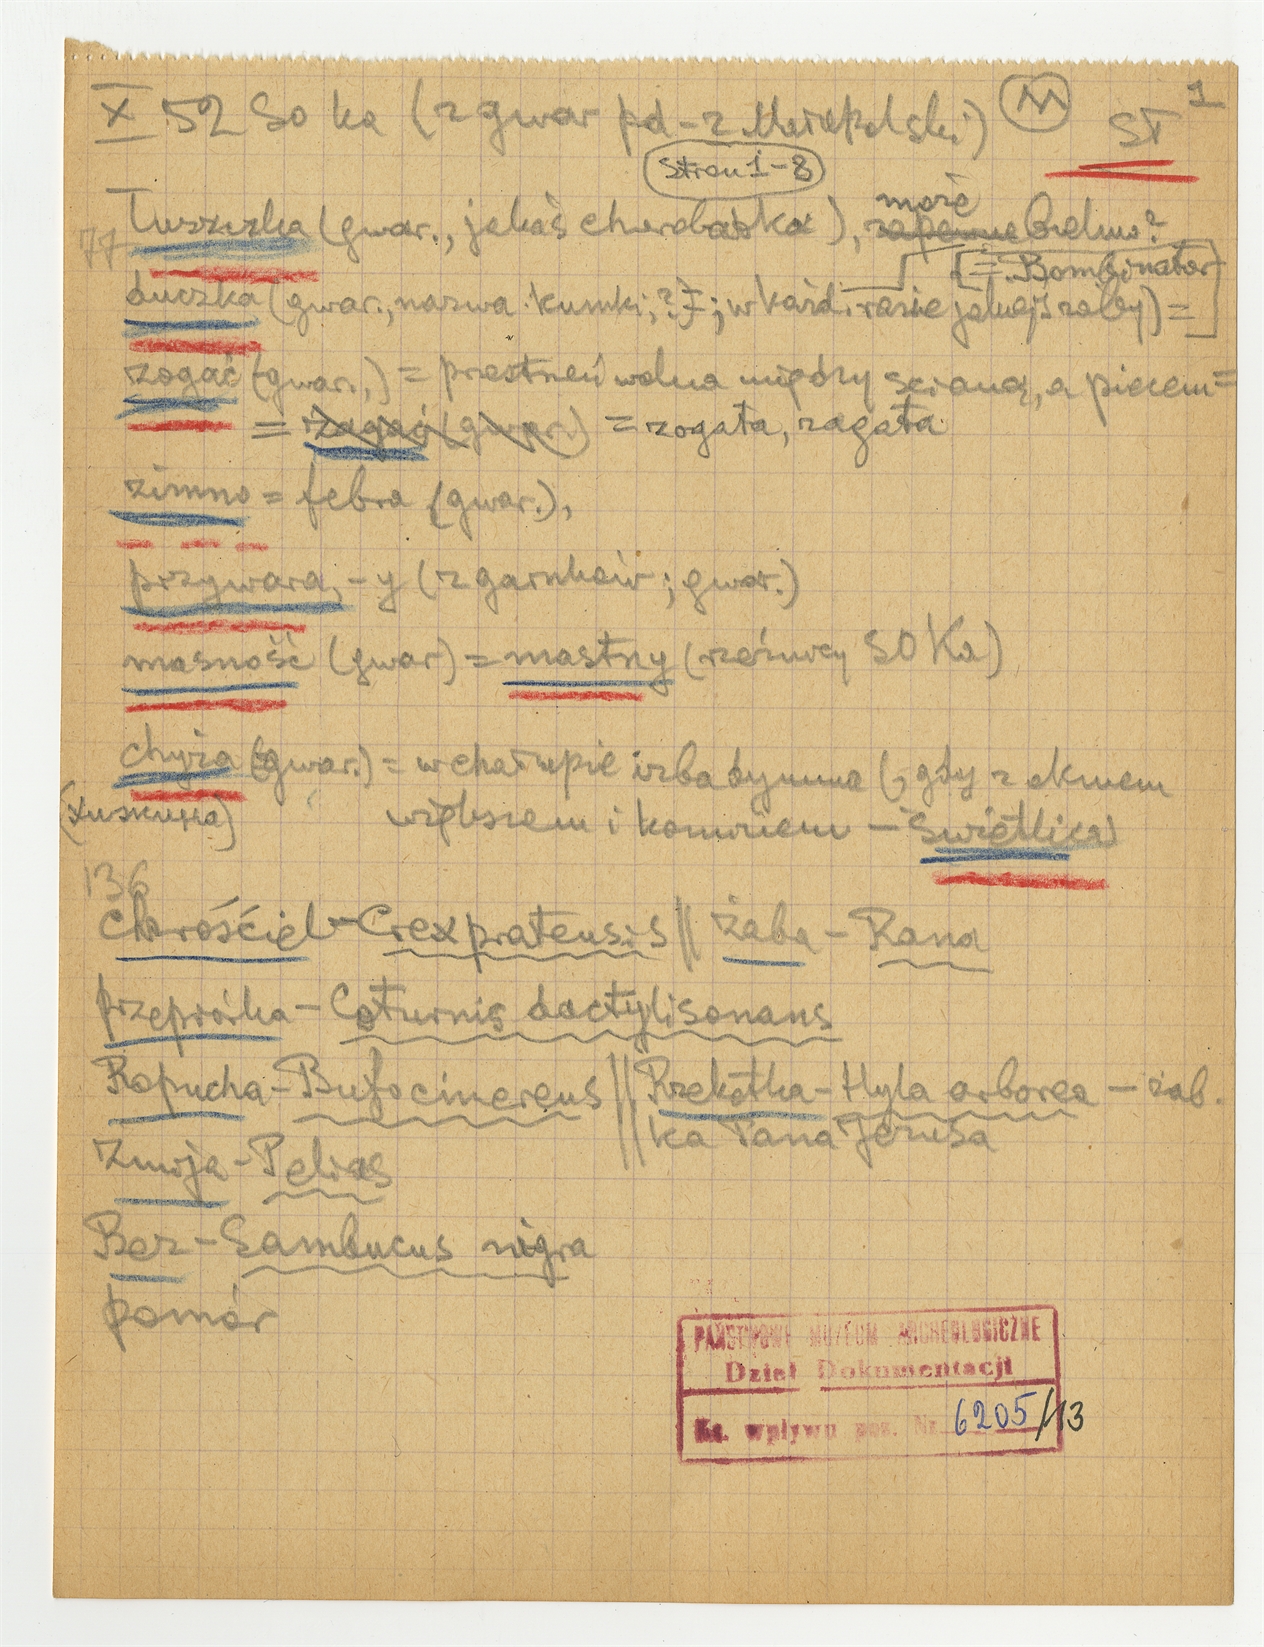 X 52 SoKa (z gwar pd-z Małopolski) M ST 1
Stron 1-8
może
77 Łuszczka (gwar., jakaś chorobaska), zapewne bielmo?
[= Bombinator]
duczka (gwar., nazwa kumki; ?); w każd. razie jakiejś żaby) =
zogać (gwar.,) = przestrzeń wolna między ścianą, a piecem =
= zagać (gwar.) = zogata, zagata
zimno = febra (gwar.),
przywara, -y (z garnków; gwar.)
masność (gwar) = mastny (SOKa)
chyża (gwar.) = w chałupie izba dymna (, gdy z oknem
większem i kominem - Świetlica)
136
chróściel - Crex pratensis || żaba - Rana
przepiórka - Coturnis dactylisonans
Ropucha - Bufo cinereus || Rzekotka - Hyla arborea - żab.
ka Pana Jezusa
Żmija - Pelias
Bez - Sambucus nigra
pomór
PAŃSTWOWE MUZEUM ARCHEOLOGICZNE
Dział Dokumentacji
Ks. wpływu poz. Nr 6205/13